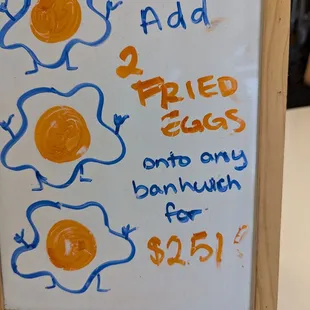 Add
2
FRIED
EGGS
onto any
banhwich
for
$2.51!